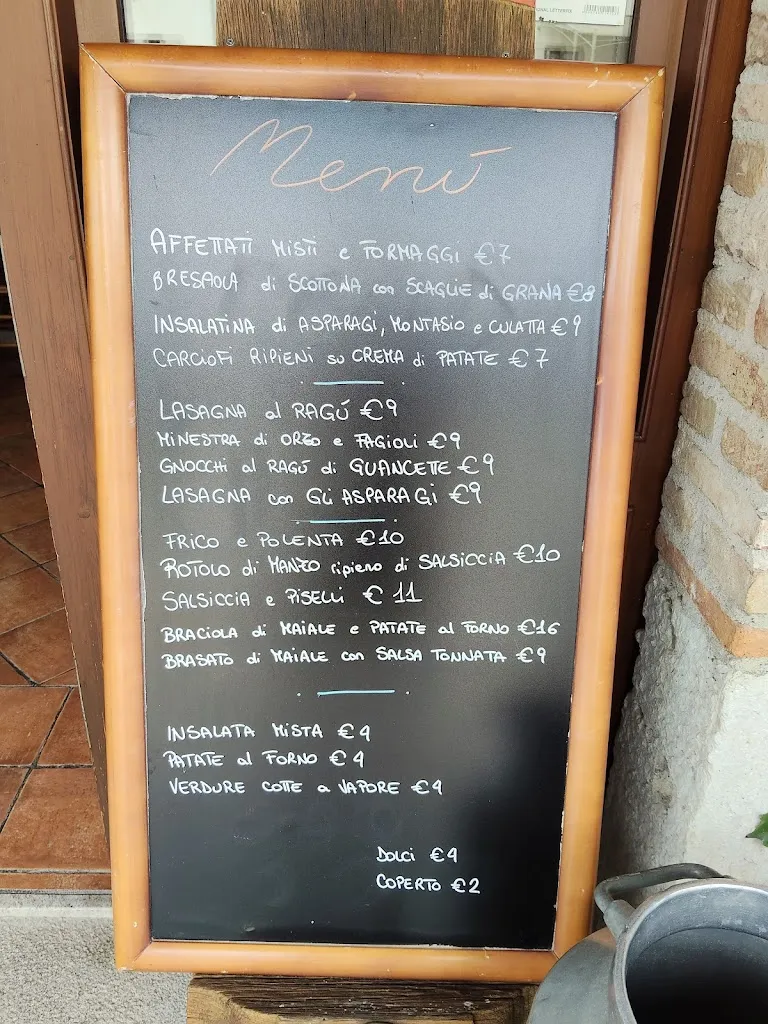 Menù
AFFETTATI MISTI e FORMAGGI €7
BRESAOLA di SCOTTONA con SCAGLIE di GRANA €8
INSALATINA di ASPARAGI, MONTASIO e CULATTA €9
CARCIOFI RIPIENI su CREMA di PATATE €7
LASAGNA al RAGÚ €9
MINESTRA di ORZO e FAGIOLI €9
GNOCCHI al RAGÚ di GUANCETTE €9
LASAGNA con GLI ASPARAGI €9
FRICO e POLENTA €10
ROTOLO di MANZO ripieno di SALSICCIA €10
SALSICCIA e PISELLI € 11
BRACIOLA di MAIALE e PATATE al FORNO €16
BRASATO di MAIALE con SALSA TONNATA €9
INSALATA MISTA €4
PATATE al FORNO €4
VERDURE COTTE a VAPORE €4
DOLCI €4
COPERTO €2